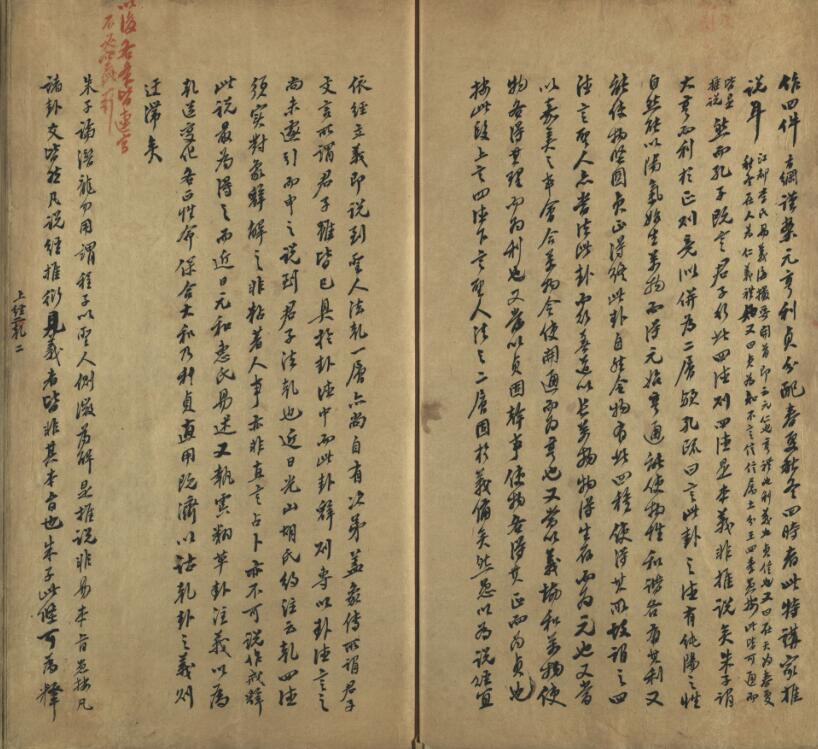 作四件 方綱謹案元亨利貞分配春夏秋冬四時者此特講家推
說耳 江都李氏周易義海撮要開首即云元仁也亨禮也利義也貞信也又曰在天為春夏
秋冬在人為仁義禮智又曰貞為知不言信信屬土分王四季愚按此皆可通而
皆是
推說 然而孔子既言君子行此四德則四德是本義非推說矣朱子謂
大亨而利於正則竟以併為二層歟孔疏曰言此卦之德有純陽之性
自然能以陽氣始生萬物而得元始亨通能使物性和諧各有其利又
能使物堅固貞正得終此卦自然令物有此四種使得其所故謂之四
德言聖人亦當法此卦而行善道以長萬物物得生存而為元也又當
以嘉美之事會合萬物令使開通而為亨也又當以義協和萬物使
物各得其理而為利也又當以貞固幹事使物各得其正而為貞也
按此段上言四德下言聖人法之二層因於義備矣然愚以為說經宜
依經立義即說到聖人法乾一層亦尚自有次第蓋彖傳所謂君子
文言所謂君子雖皆已具於卦德中而此卦辭則專以卦德言之
尚未遽引而申之說到君子法乾也近日光山胡氏約注云乾四德
須實對彖辭解之非粘著人事亦非直言占卜亦不可說作戒辭
此說最為得之而近日元和惠氏易述又執虞翻革卦注義以為
乾道變化各正性命保合太和乃利貞直用既濟以詁乾卦之義則
迂滯矣
以後各卷皆連書
不必
朱子論潛龍勿用謂程子以聖人側微為解是推說非易本旨愚按凡
諸卦爻皆然凡說經推衍見義者皆非其本旨也朱子此條可為釋
上經乾二